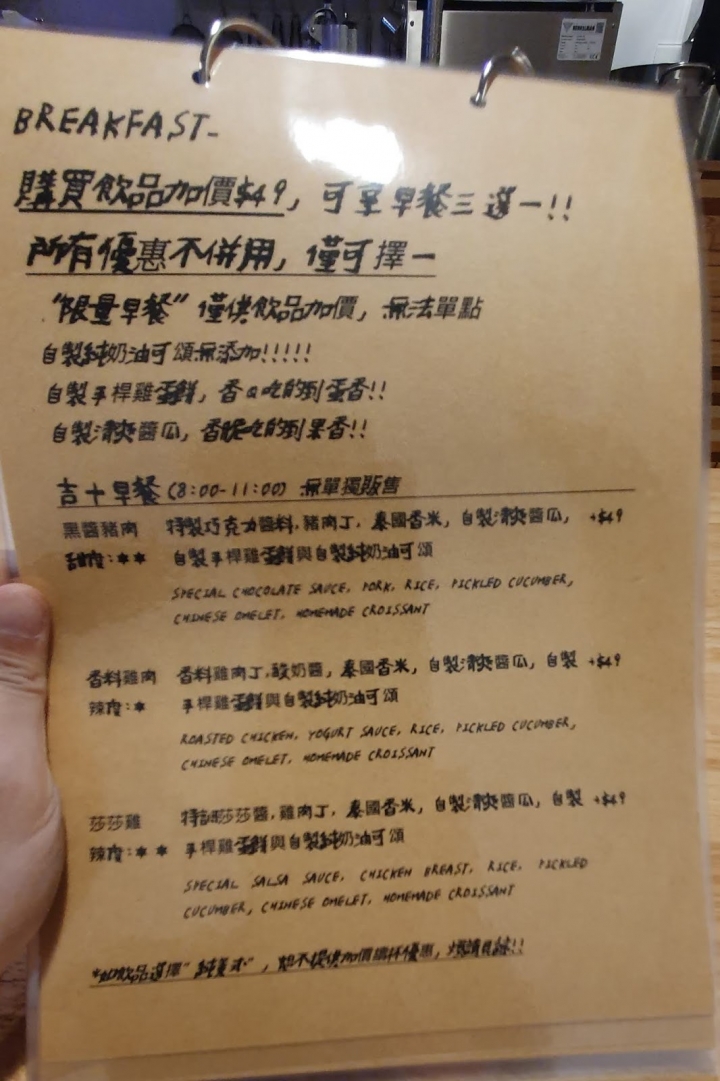 BREAKFAST-
購買飲品加價$49, 可享早餐三選一!!
所有優惠不併用, 僅可擇一
"限量早餐" 僅供飲品加價, 無法單點
自製純奶油可頌無添加!!!!!
自製手桿雞蛋餅, 香Q吃的到蛋香!!
自製清爽醬瓜, 香脆吃的到果香!!
吉十早餐 (8:00-11:00) 無單獨販售
黑醬豬肉 特製巧克力醬料, 豬肉丁, 泰國香米, 自製清爽醬瓜, +$49
甜度:** 自製手桿雞蛋餅與自製純奶油可頌
SPECIAL CHOCOLATE SAUCE, PORK, RICE, PICKLED CUCUMBER,
CHINESE OMELET, HOMEMADE CROISSANT
香料雞肉 香料雞肉丁, 酸奶醬, 泰國香米, 自製清爽醬瓜, 自製 +$49
辣度:* 手桿雞蛋餅與自製純奶油可頌
ROASTED CHICKEN, YOGURT SAUCE, RICE, PICKLED CUCUMBER,
CHINESE OMELET, HOMEMADE CROISSANT
莎莎雞 特調莎莎醬, 雞肉丁, 泰國香米, 自製清爽醬瓜, 自製 +$49
辣度:** 手桿雞蛋餅與自製純奶油可頌
SPECIAL SALSA SAUCE, CHICKEN BREAST, RICE, PICKLED
CUCUMBER, CHINESE OMELET, HOMEMADE CROISSANT
*如飲品選擇"純美式", 恕不提供加價續杯優惠, 煩請見諒!!